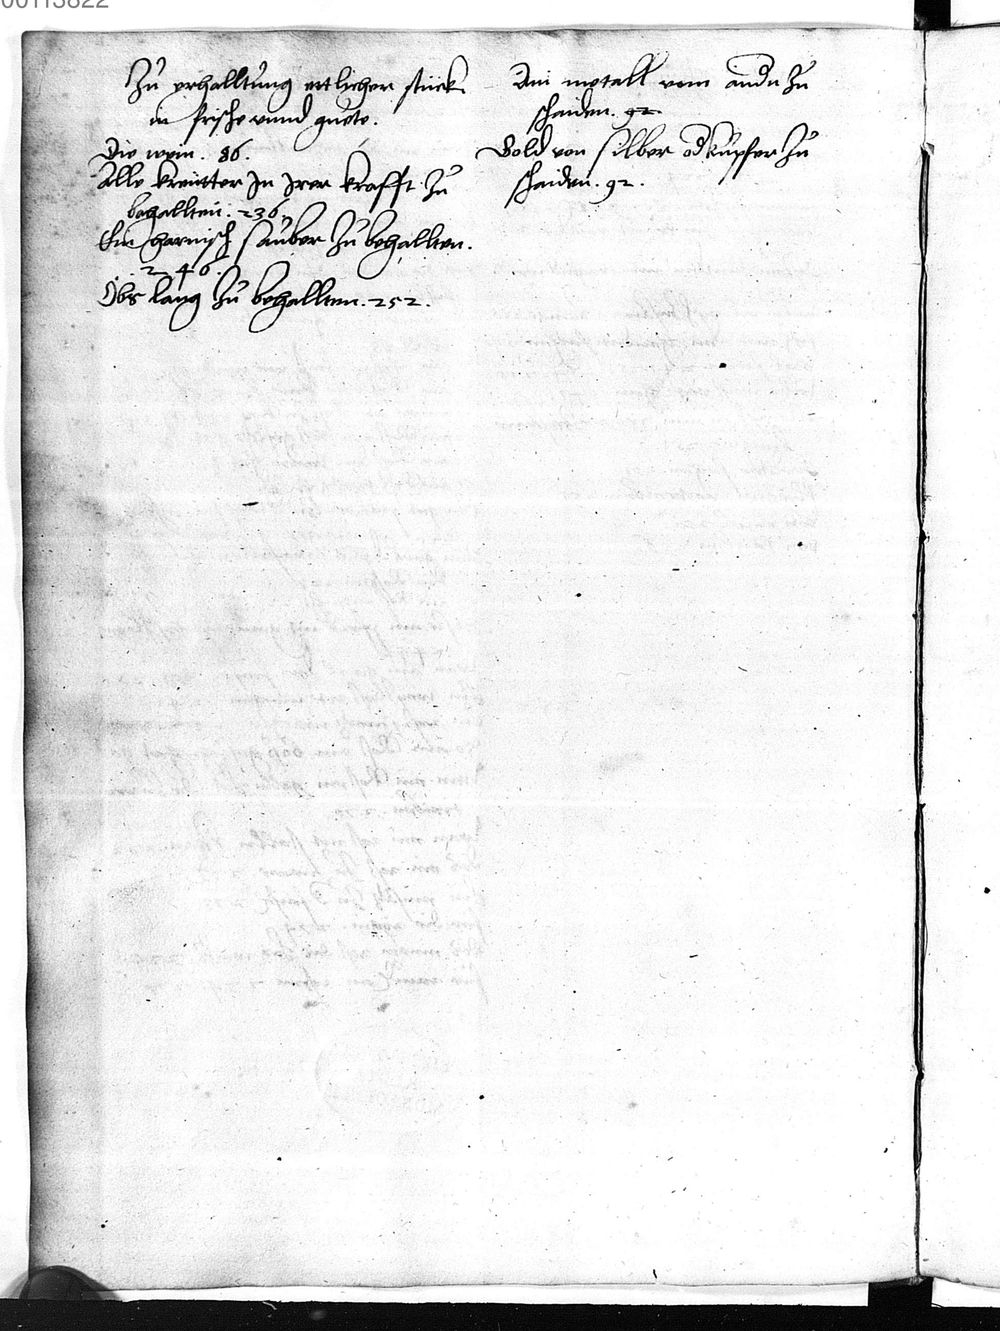 Zu erhalltung ettlicher stuck
in frische vnnd guete.
Die wein. 86.
Alle kreutter In Irer krafft zu
behallten. 236.
Ein harnisch sauber zu behallten.
246.
Obs lang zu behallten. 252.
Ain metall vom andn zu
schaiden. 92.
Gold von silber od kupfer zu
schaiden. 92.